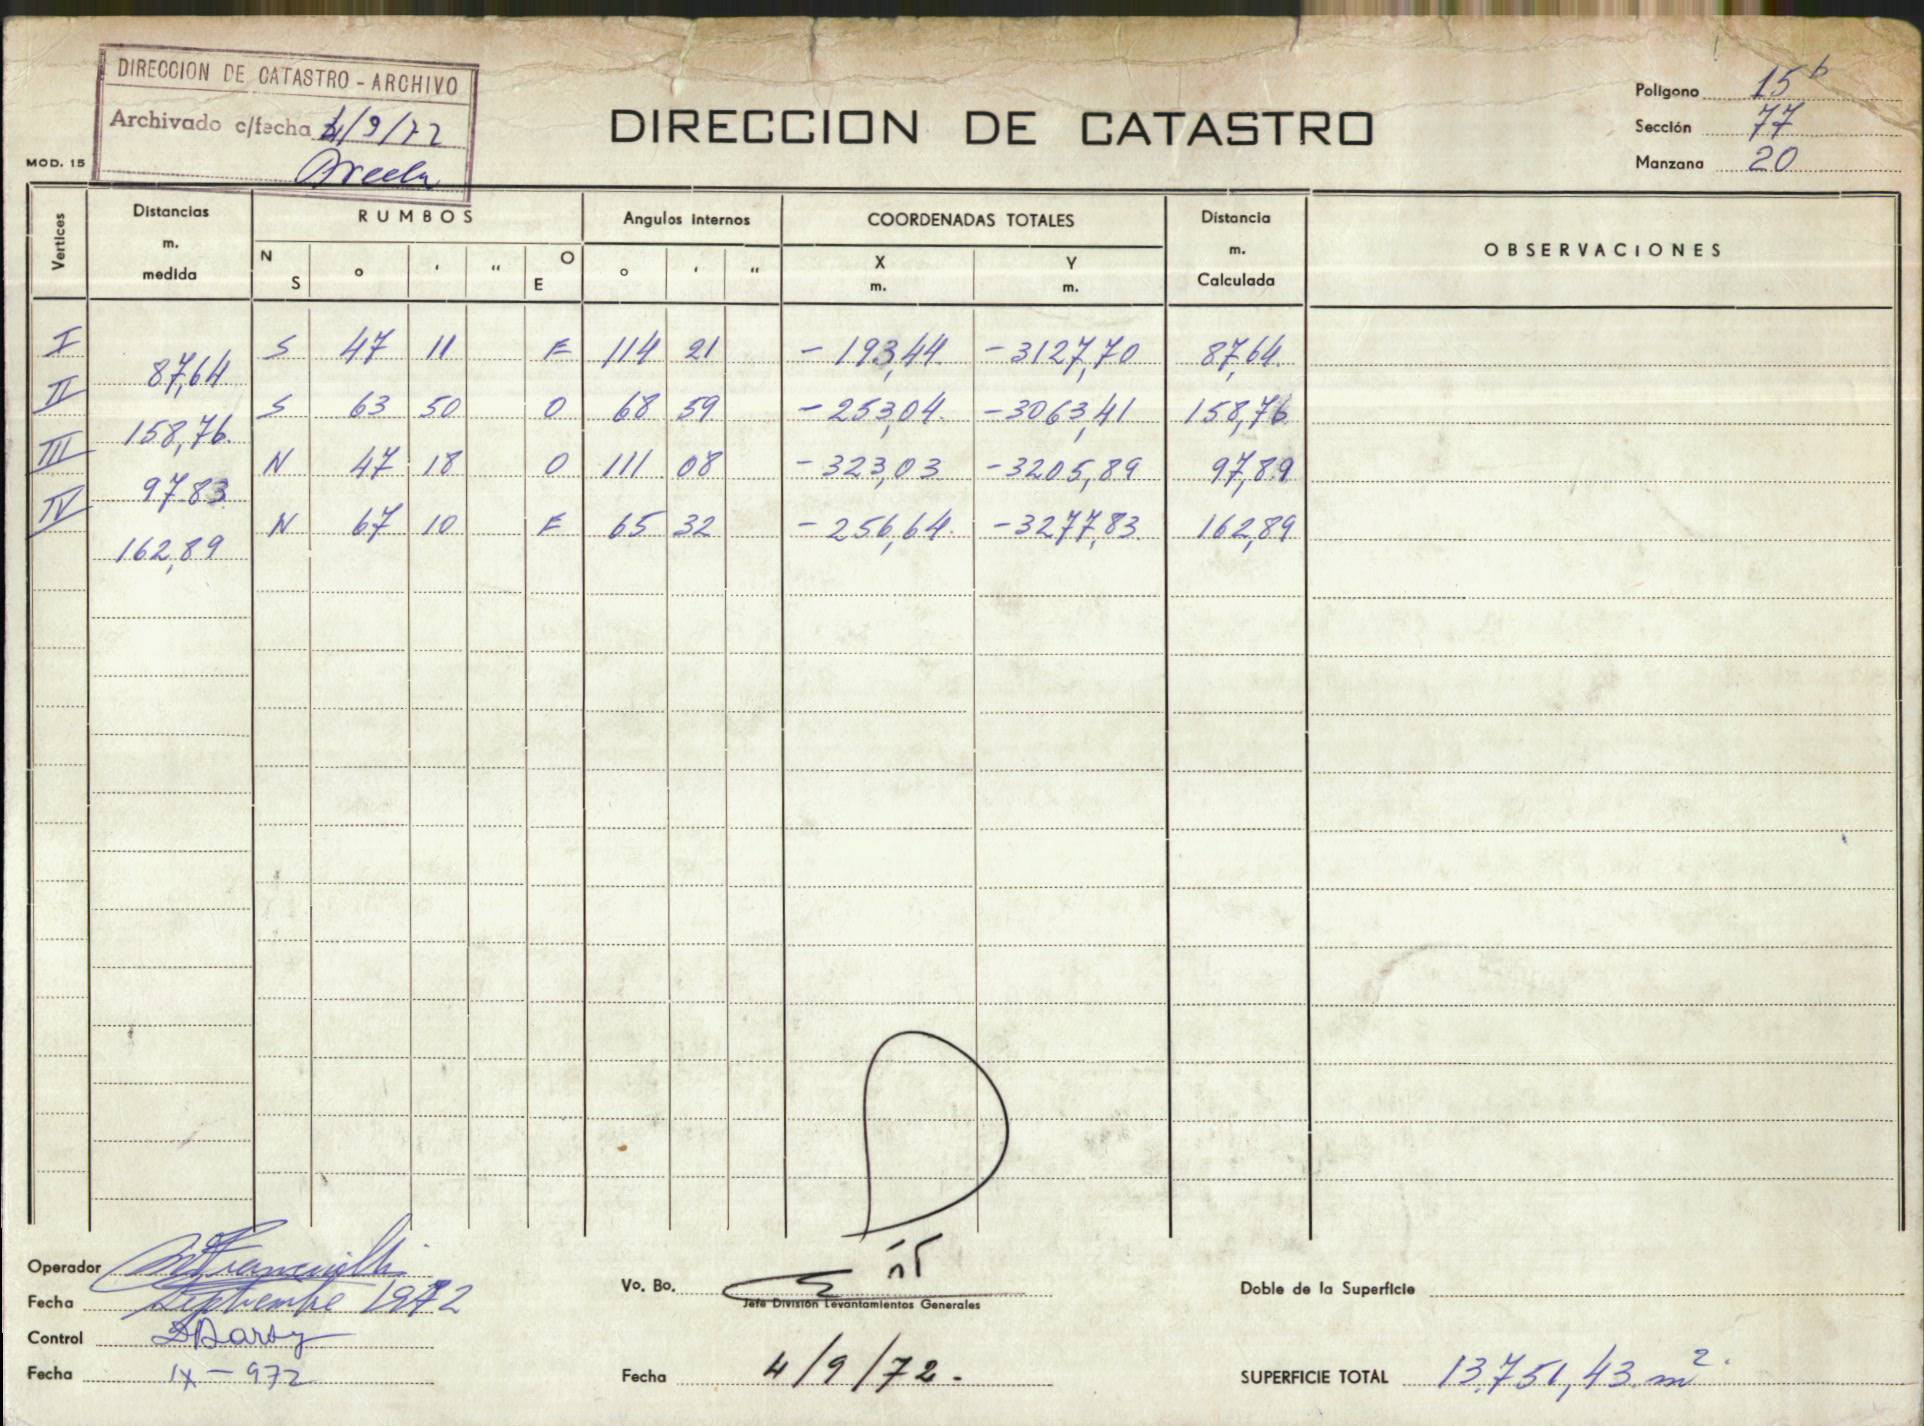 DIRECCION DE CATASTRO - ARCHIVO
Archivado c/fecha 4/9/72
MOD. 15
DIRECCION DE CATASTRO
Poligono 15 b
Sección 77
Manzana 20
Vertices Distancias m. medida RUMBOS Angulos Internos COORDENADAS TOTALES Distancia m. Calculada OBSERVACIONES
N S ° ' " O E ° ' " X m. Y m.
I S 47 11 E 114 21 - 193,44 - 3127,70 87,64
87,64
II S 63 50 O 68 59 - 253,04 - 3063,41 158,76
158,76
III N 47 18 O 111 08 - 323,03 - 3205,89 97,89
97,83
IV N 67 10 E 65 32 - 256,64 - 3277,83 162,89
162,89
Operador
Fecha Septiembre 1972
Control
Fecha IX - 972
Vo. Bo.
Jefe División Levantamientos Generales
Fecha 4/9/72.
Doble de la Superficie
SUPERFICIE TOTAL 13.751,43 m².